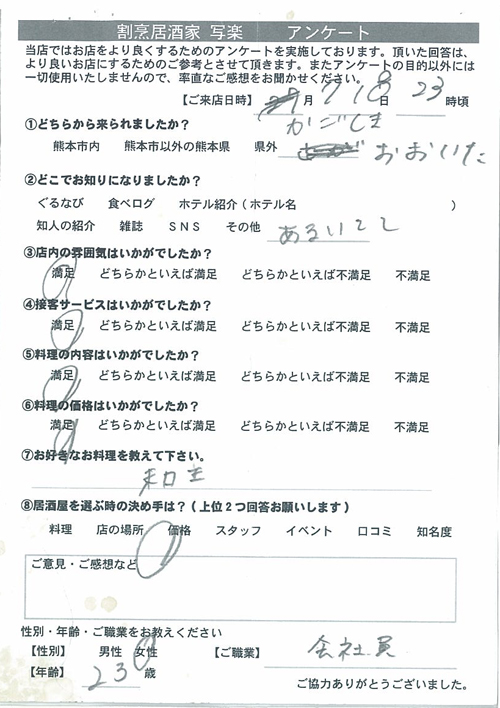 割烹居酒家 写楽 アンケート
当店ではお店をより良くするためのアンケートを実施しております。頂いた回答は、
より良いお店にするためのご参考とさせて頂きます。またアンケートの目的以外には
一切使用いたしませんので、率直なご感想をお聞かせください。
【ご来店日時】 月 718日 23時頃
①どちらから来られましたか? かごしま
熊本市内 熊本市以外の熊本県 県外 おおいた
②どこでお知りになりましたか?
ぐるなび 食べログ ホテル紹介(ホテル名 )
知人の紹介 雑誌 SNS その他 あるいてて
③店内の雰囲気はいかがでしたか?
満足 どちらかといえば満足 どちらかといえば不満足 不満足
④接客サービスはいかがでしたか?
満足 どちらかといえば満足 どちらかといえば不満足 不満足
⑤料理の内容はいかがでしたか?
満足 どちらかといえば満足 どちらかといえば不満足 不満足
⑥料理の価格はいかがでしたか?
満足 どちらかといえば満足 どちらかといえば不満足 不満足
⑦お好きなお料理を教えて下さい。
⑧居酒屋を選ぶ時の決め手は?(上位2つ回答お願いします)
料理 店の場所 価格 スタッフ イベント 口コミ 知名度
ご意見・ご感想など
性別・年齢・ご職業をお教えください
【性別】 男性 女性 【ご職業】 会社員
【年齢】 23 歳
ご協力ありがとうございました。